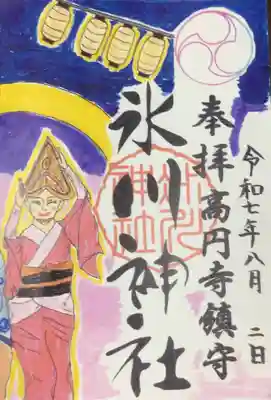 令和七年八月 二日
奉拝 高円寺鎮守
氷川神社
氷川
神社